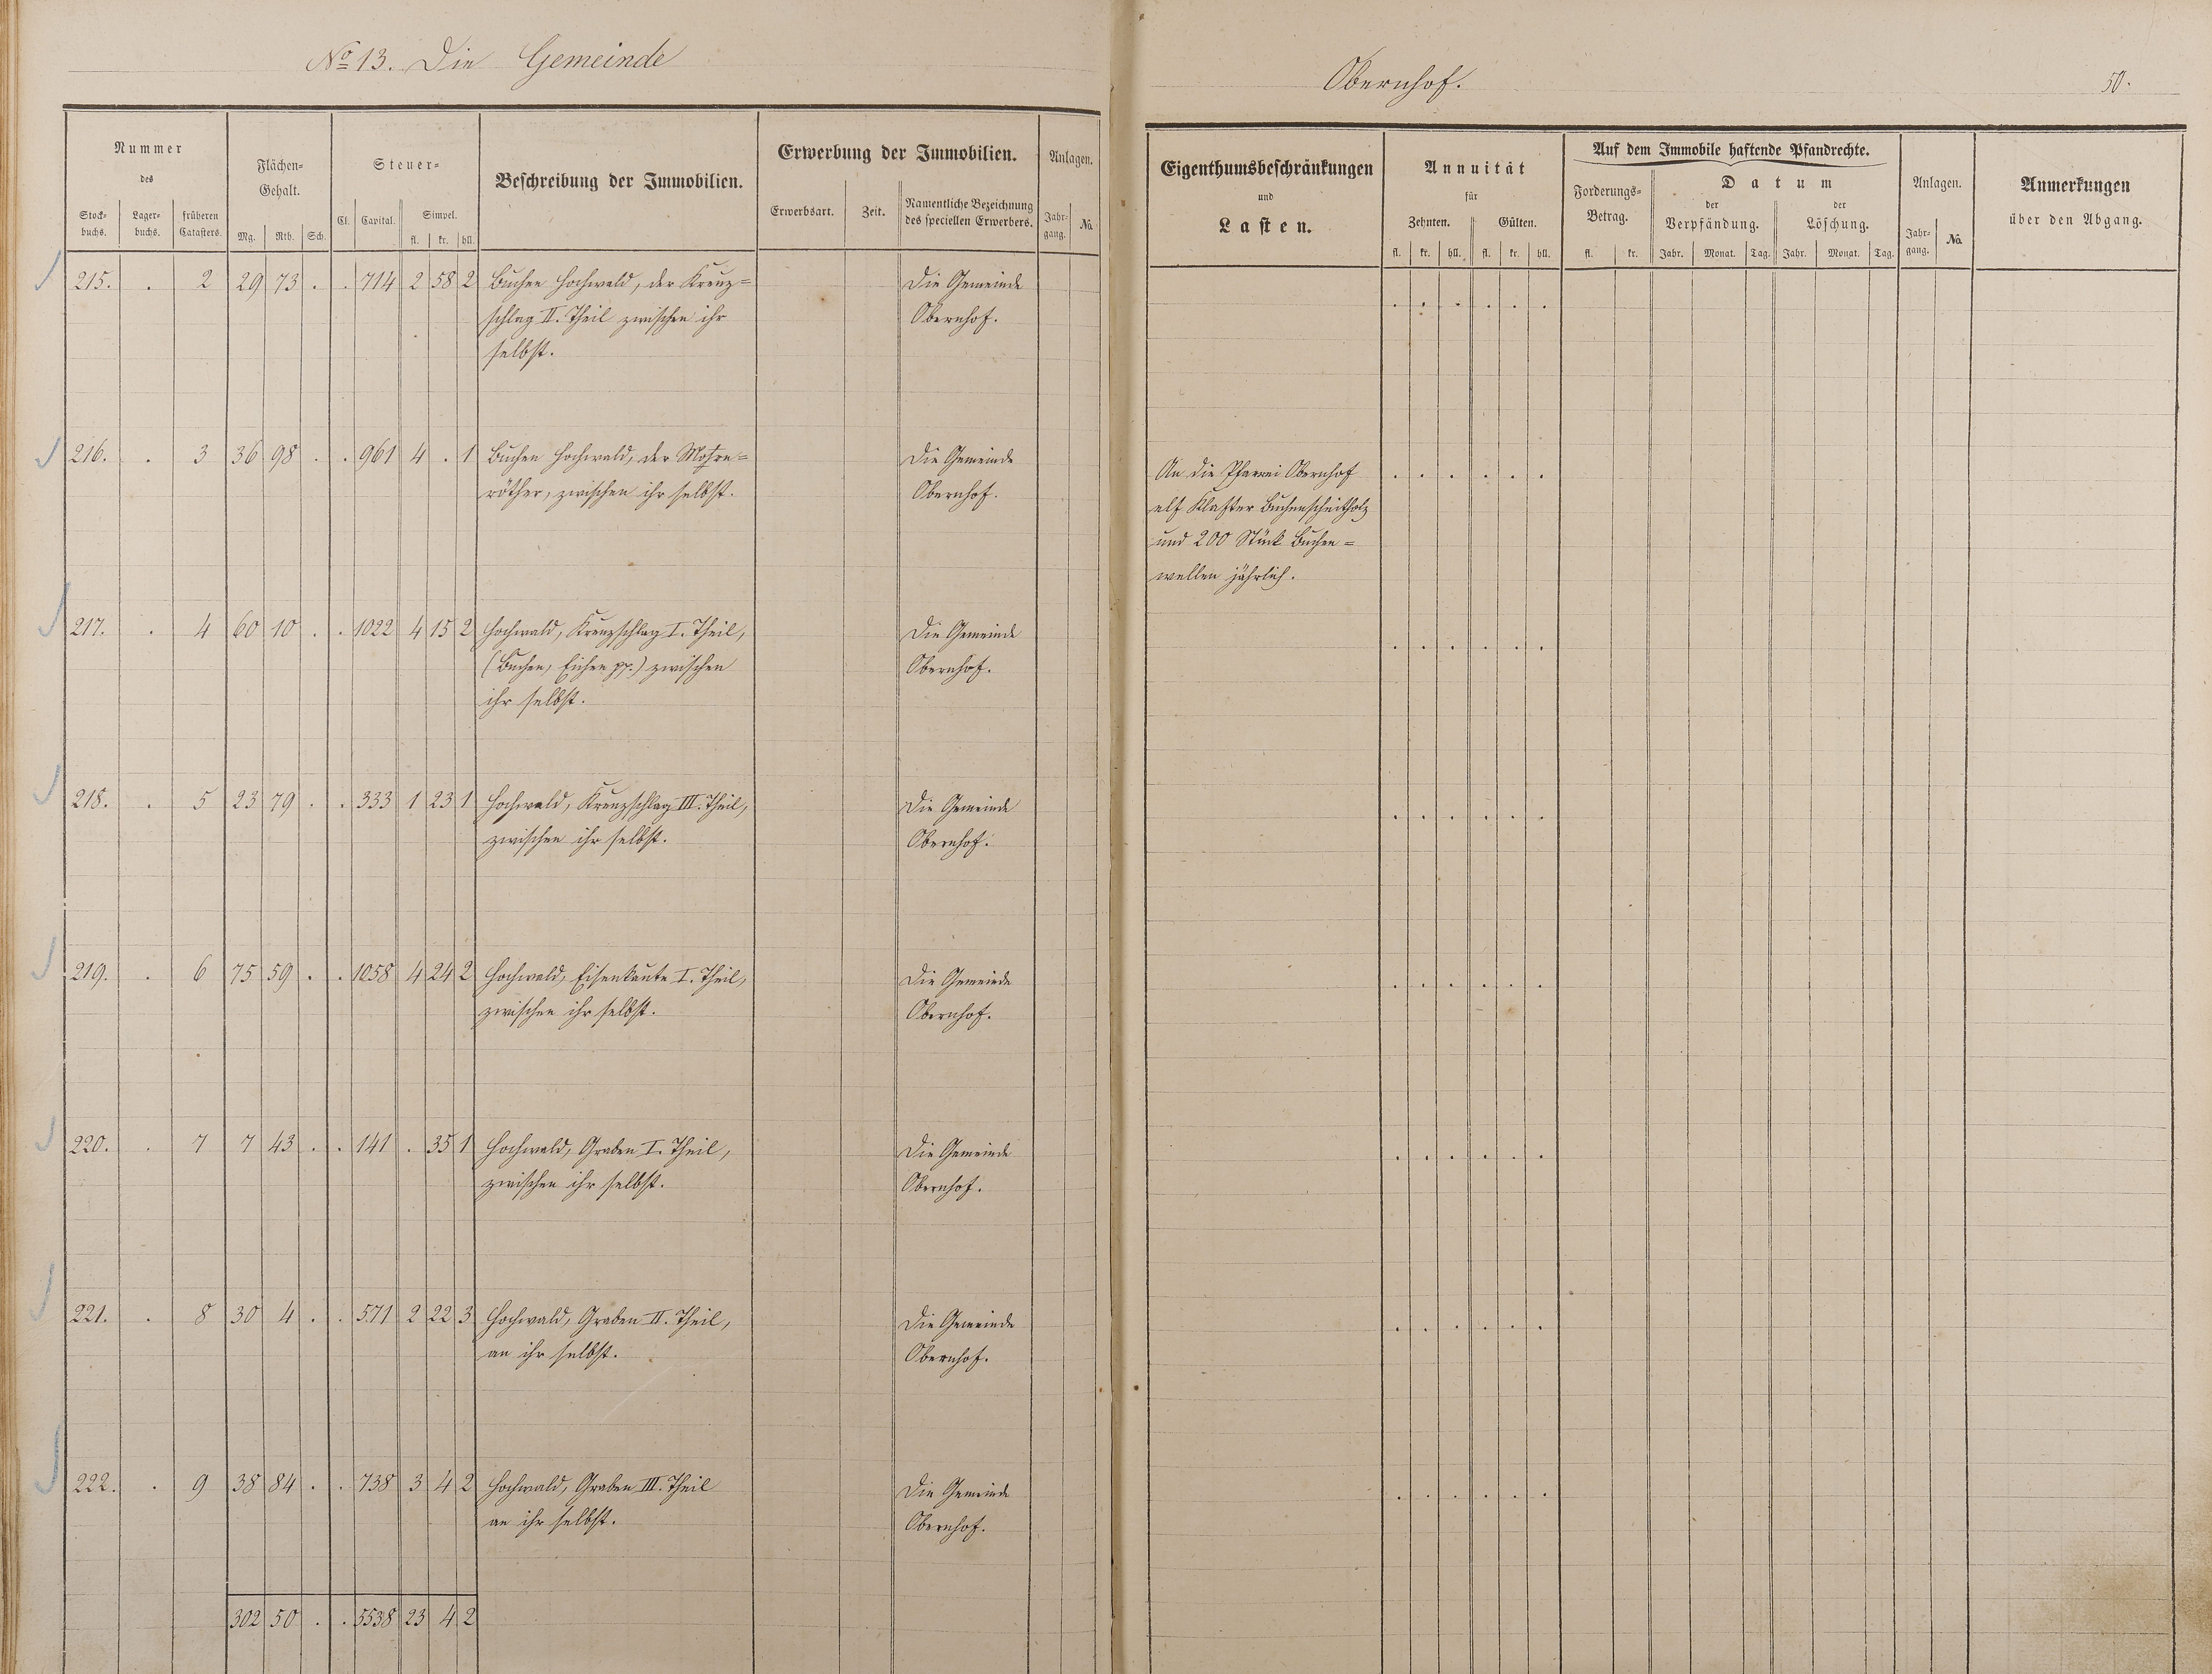 No 13. Die Gemeinde
Obernhof.
50.
Nummer
des
Stock-
buchs.
Lager-
buchs.
früheren
Catasters.
Flächen-
Gehalt.
Mg. Rth. Sch.
Steuer-
Cl. Capital. Simpel.
fl. kr. hll.
Beschreibung der Immobilien.
Erwerbung der Immobilien.
Erwerbsart. Zeit. Namentliche Bezeichnung
des speciellen Erwerbers.
Anlagen.
Jahr-
gang. No.
Eigenthumsbeschränkungen
und
Lasten.
Annuität
für
Zehnten. Gülten.
fl. kr. hll. fl. kr. hll.
Auf dem Immobile haftende Pfandrechte.
Forderungs-
Betrag.
fl. kr.
Datum
der
Verpfändung.
der
Löschung.
Jahr. Monat. Tag. Jahr. Monat. Tag.
Anlagen.
Jahr-
gang. No.
Anmerkungen
über den Abgang.
215. . 2 29 73 . . 714 2 58 2 Buchen Hochwald, der Kreuz= Die Gemeinde
schlag II. Theil zwischen ihr Obernhof.
selbst.
216. . 3 36 98 . . 961 4 . 1 Buchen Hochwald, der Mohren= Die Gemeinde
röther, zwischen ihr selbst. Obernhof.
An die Pfarrei Obernhof
elf Klafter Buchenscheitholz
und 200 Stück Buchen=
wellen jährlich.
217. . 4 60 10 . . 1022 4 15 2 Hochwald, Kreuzschlag I. Theil, Die Gemeinde
(Buchen, Eichen pp.) zwischen Obernhof.
ihr selbst.
218. . 5 23 79 . . 333 1 23 1 Hochwald, Kreuzschlag III. Theil, Die Gemeinde
zwischen ihr selbst. Obernhof.
219. . 6 75 59 . . 1058 4 24 2 Hochwald, Eisenkaute I. Theil, Die Gemeinde
zwischen ihr selbst. Obernhof.
220. . 7 7 43 . . 141 . 35 1 Hochwald, Graben I. Theil, Die Gemeinde
zwischen ihr selbst. Obernhof.
221. . 8 30 4 . . 571 2 22 3 Hochwald, Graben II. Theil, Die Gemeinde
an ihr selbst. Obernhof.
222. . 9 38 84 . . 738 3 4 2 Hochwald, Graben III. Theil Die Gemeinde
an ihr selbst. Obernhof.
302 50 . . 5538 23 4 2